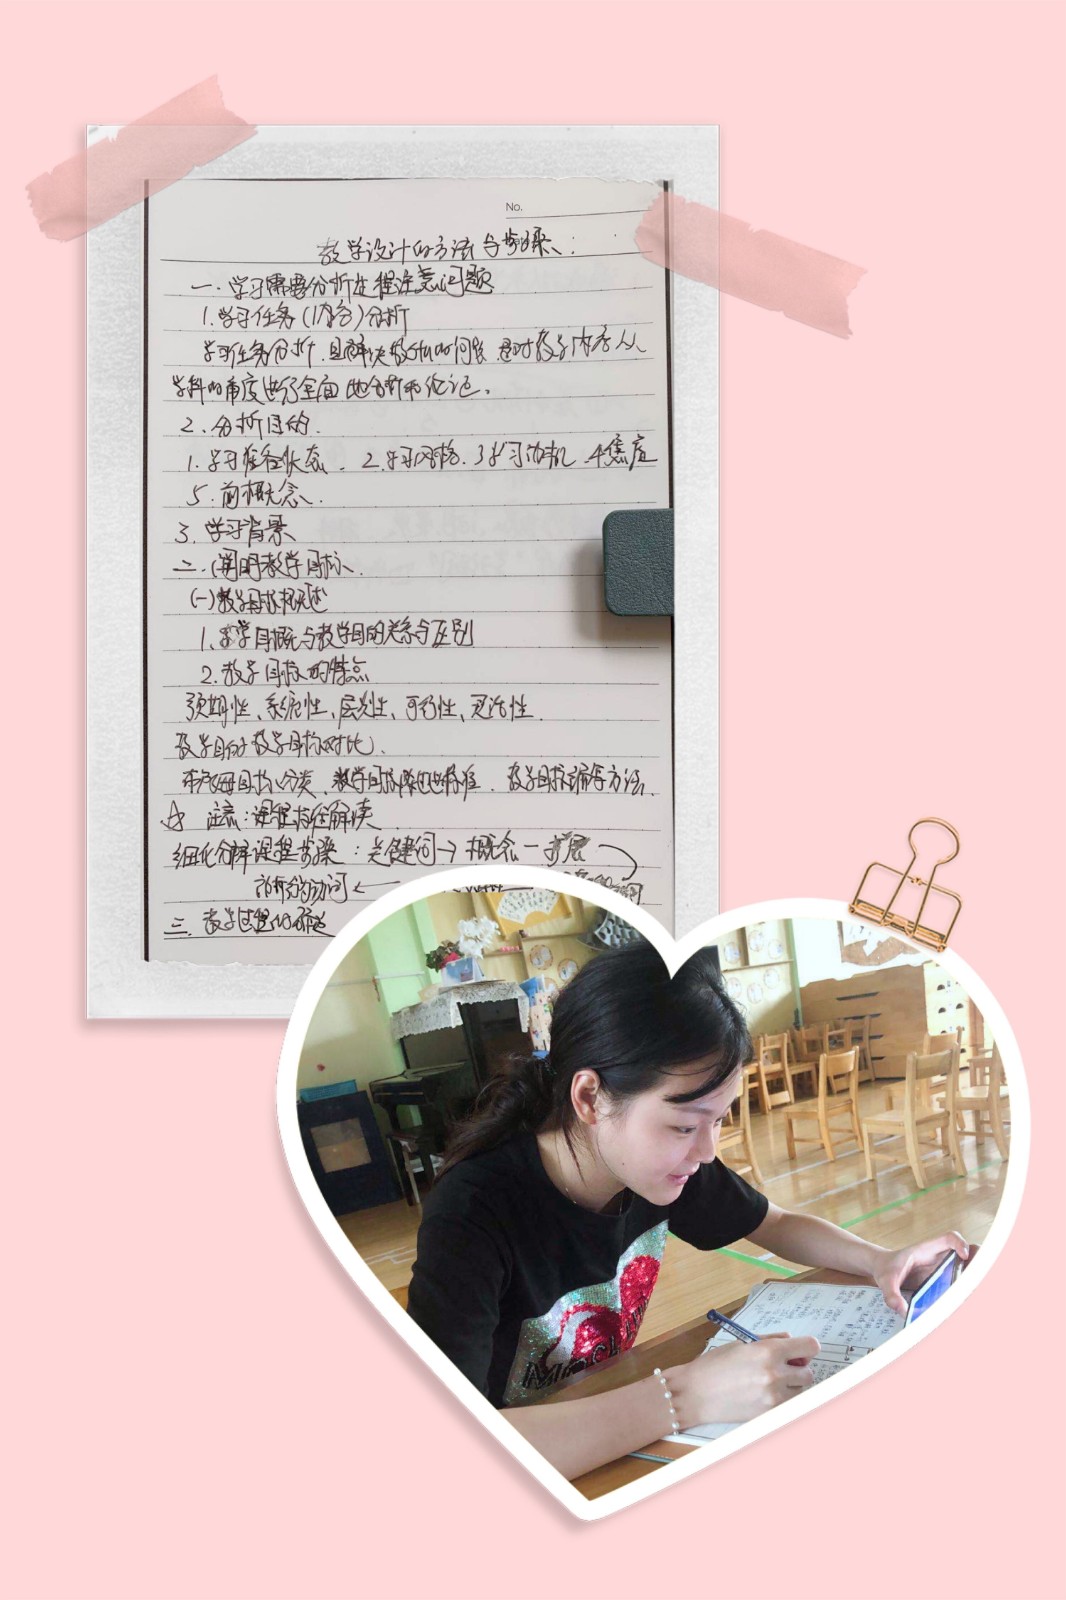 No.
教学设计的方法与步骤:
一.学习需要分析过程注意问题
1.学习任务(内容)分析
学习任务分析.且解决教什么的问题 是对教学内容从
学科的角度进行全面地分析和论证。
2.分析目的.
1.学习准备状态. 2.学习风格.3学习动机.4焦虑
5.前概念.
3.学习背景
二.阐明教学目标.
(一)教学目标概述
1.教学目标与教学目的关系与区别
2.教学目标的特点
预期性、系统性、层次性、可行性、灵活性.
教学目的与教学目标对比.
布卢姆目标分类、教学目标陈述标准.教学目标编写方法.
☆ 注意:课程标准解读
细化分解课程步骤:关键词→概念一扩展
剖析行为动词←
三.教学过程的